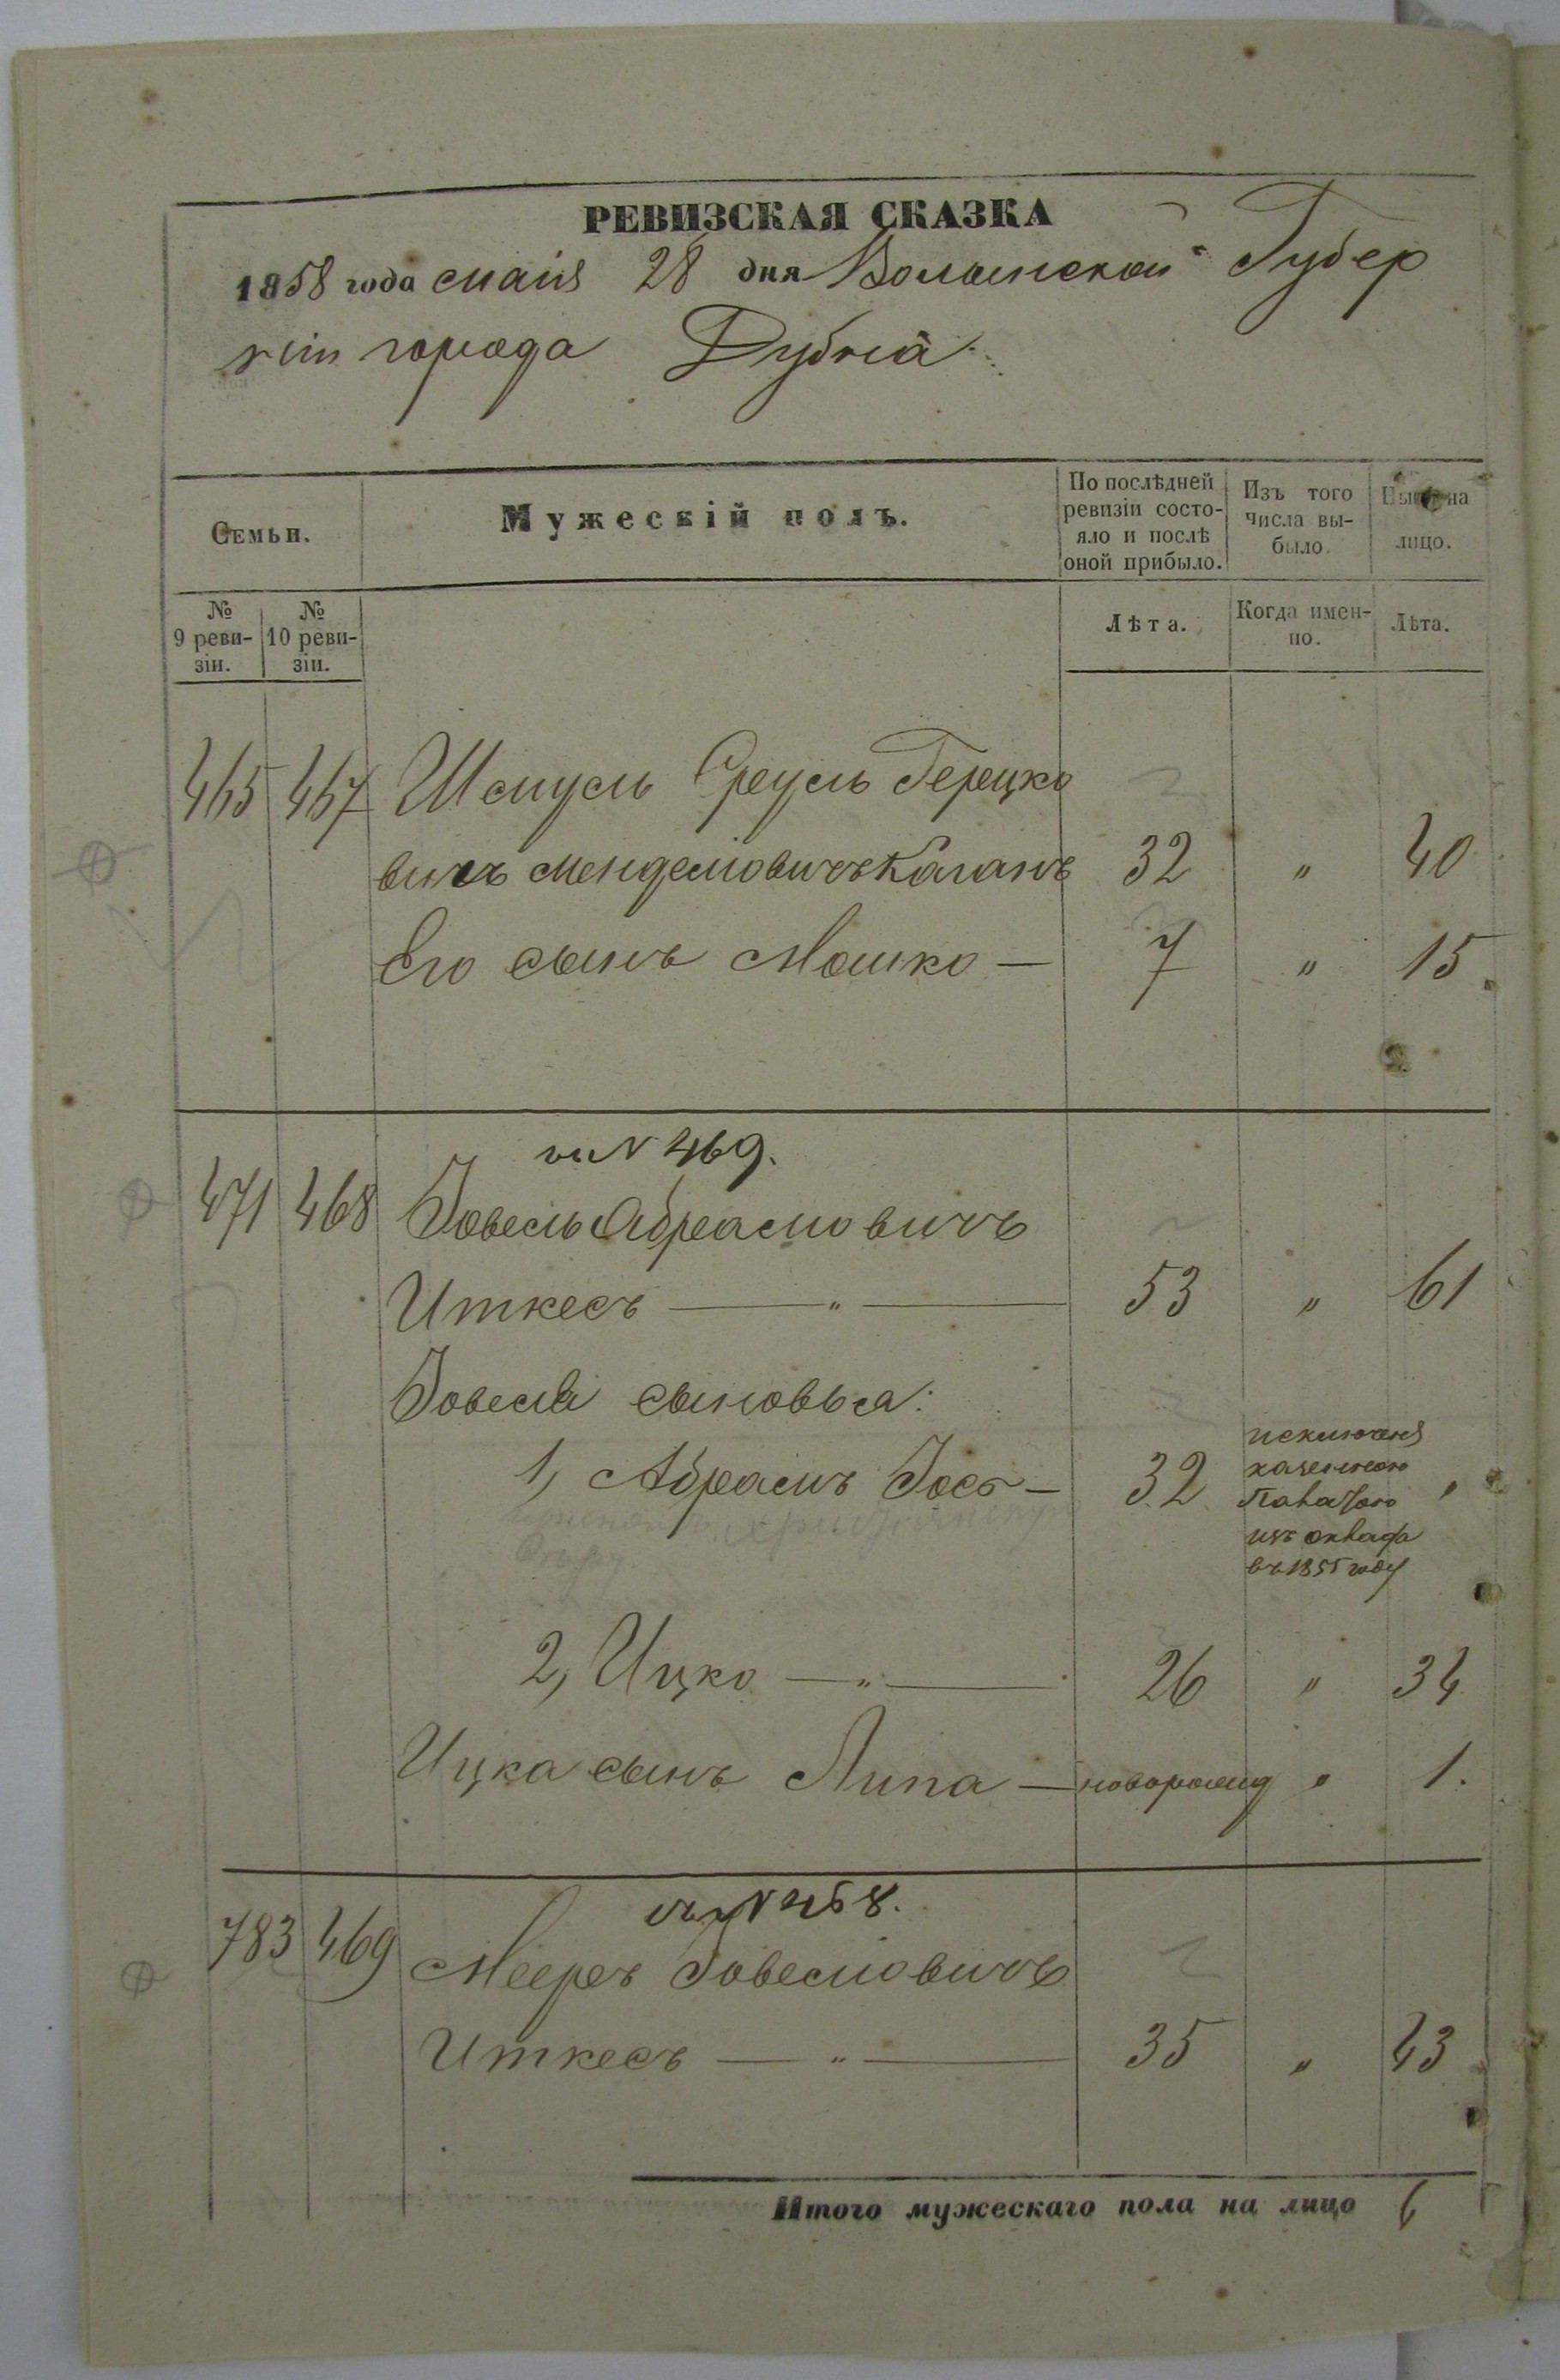 РЕВИЗСКАЯ СКАЗКА
1858 года маія 28 дня Волынской Губер
ніи города Дубна
Семьи.
Мужескій полъ.
По послѣдней ревизіи состо-
яло и послѣ оной прибыло.
Изъ того числа вы-
было.
на лицо.
№ 9 реви-
зіи.
№ 10 реви-
зіи.
Лѣта.
Когда имен-
но.
Лѣта.
465 467 Шмуль Сруль Герцко
вичъ Менделіовичъ Каганъ 32 " 40
Его сынъ Мошко — 7 " 15.
N 469.
471 468 Іовель Абрамовичъ
Иткесъ — " — 53 " 61
Іовеля сыновья:
1, Абрамъ Іось — 32 исключенъ
казенною
Палатою
изъ оклада
въ 1855 году
2, Ицко — " — 26 " 34
Ицка сынъ Липа — новорожд " 1.
N 468.
783 469 Мееръ Іовеліовичъ
Иткесъ — " — 35 " 43
Итого мужескаго пола на лицо 6